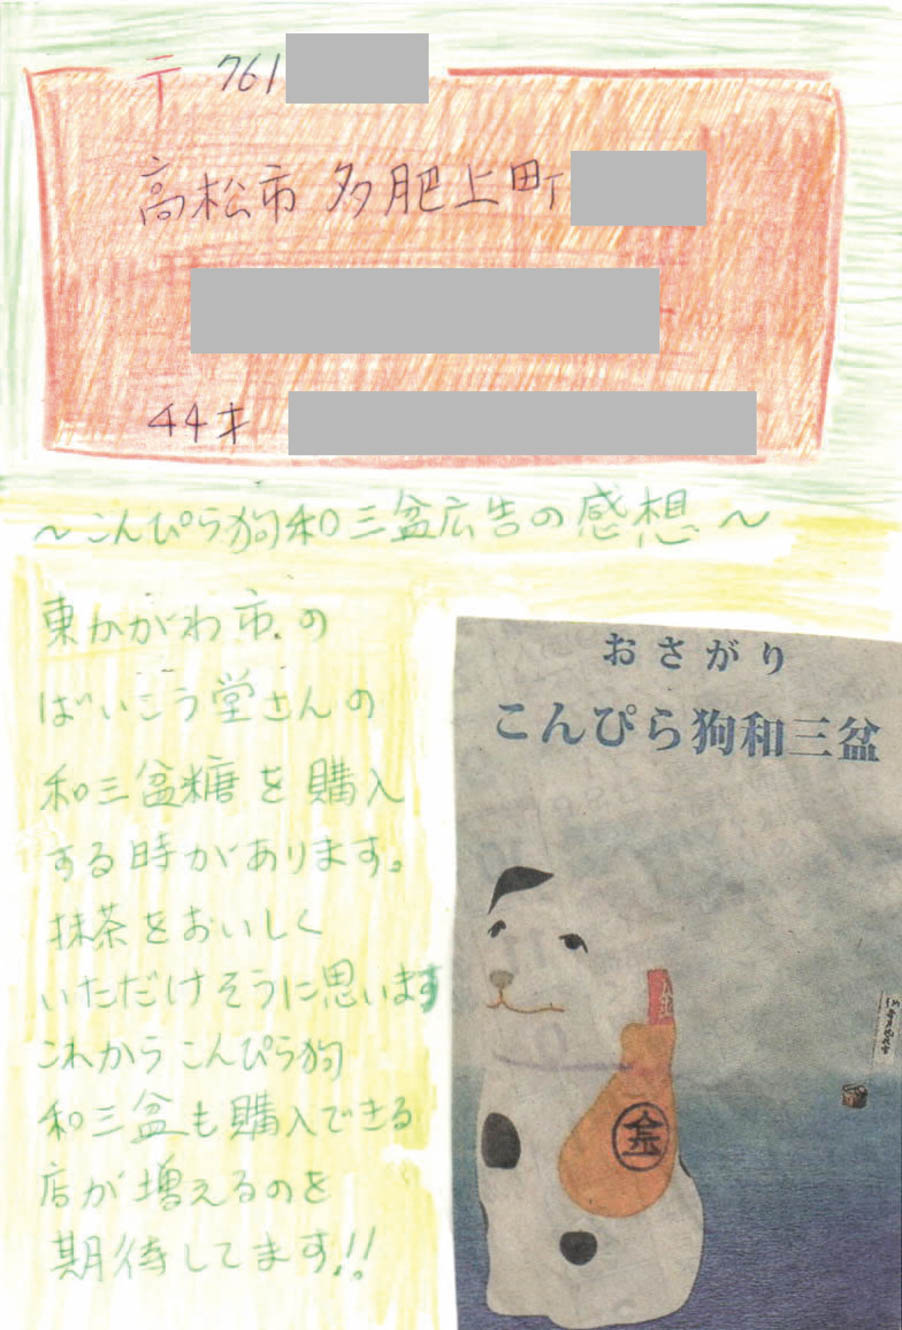 〒761
高松市 多肥上町
44才
～こんぴら狗和三盆広告の感想～
東かがわ市の
ばいこう堂さんの
和三盆糖を購入
する時があります。
抹茶をおいしく
いただけそうに思います
これからこんぴら狗
和三盆も購入できる
店が増えるのを
期待してます!!
おさがり
こんぴら狗和三盆
金